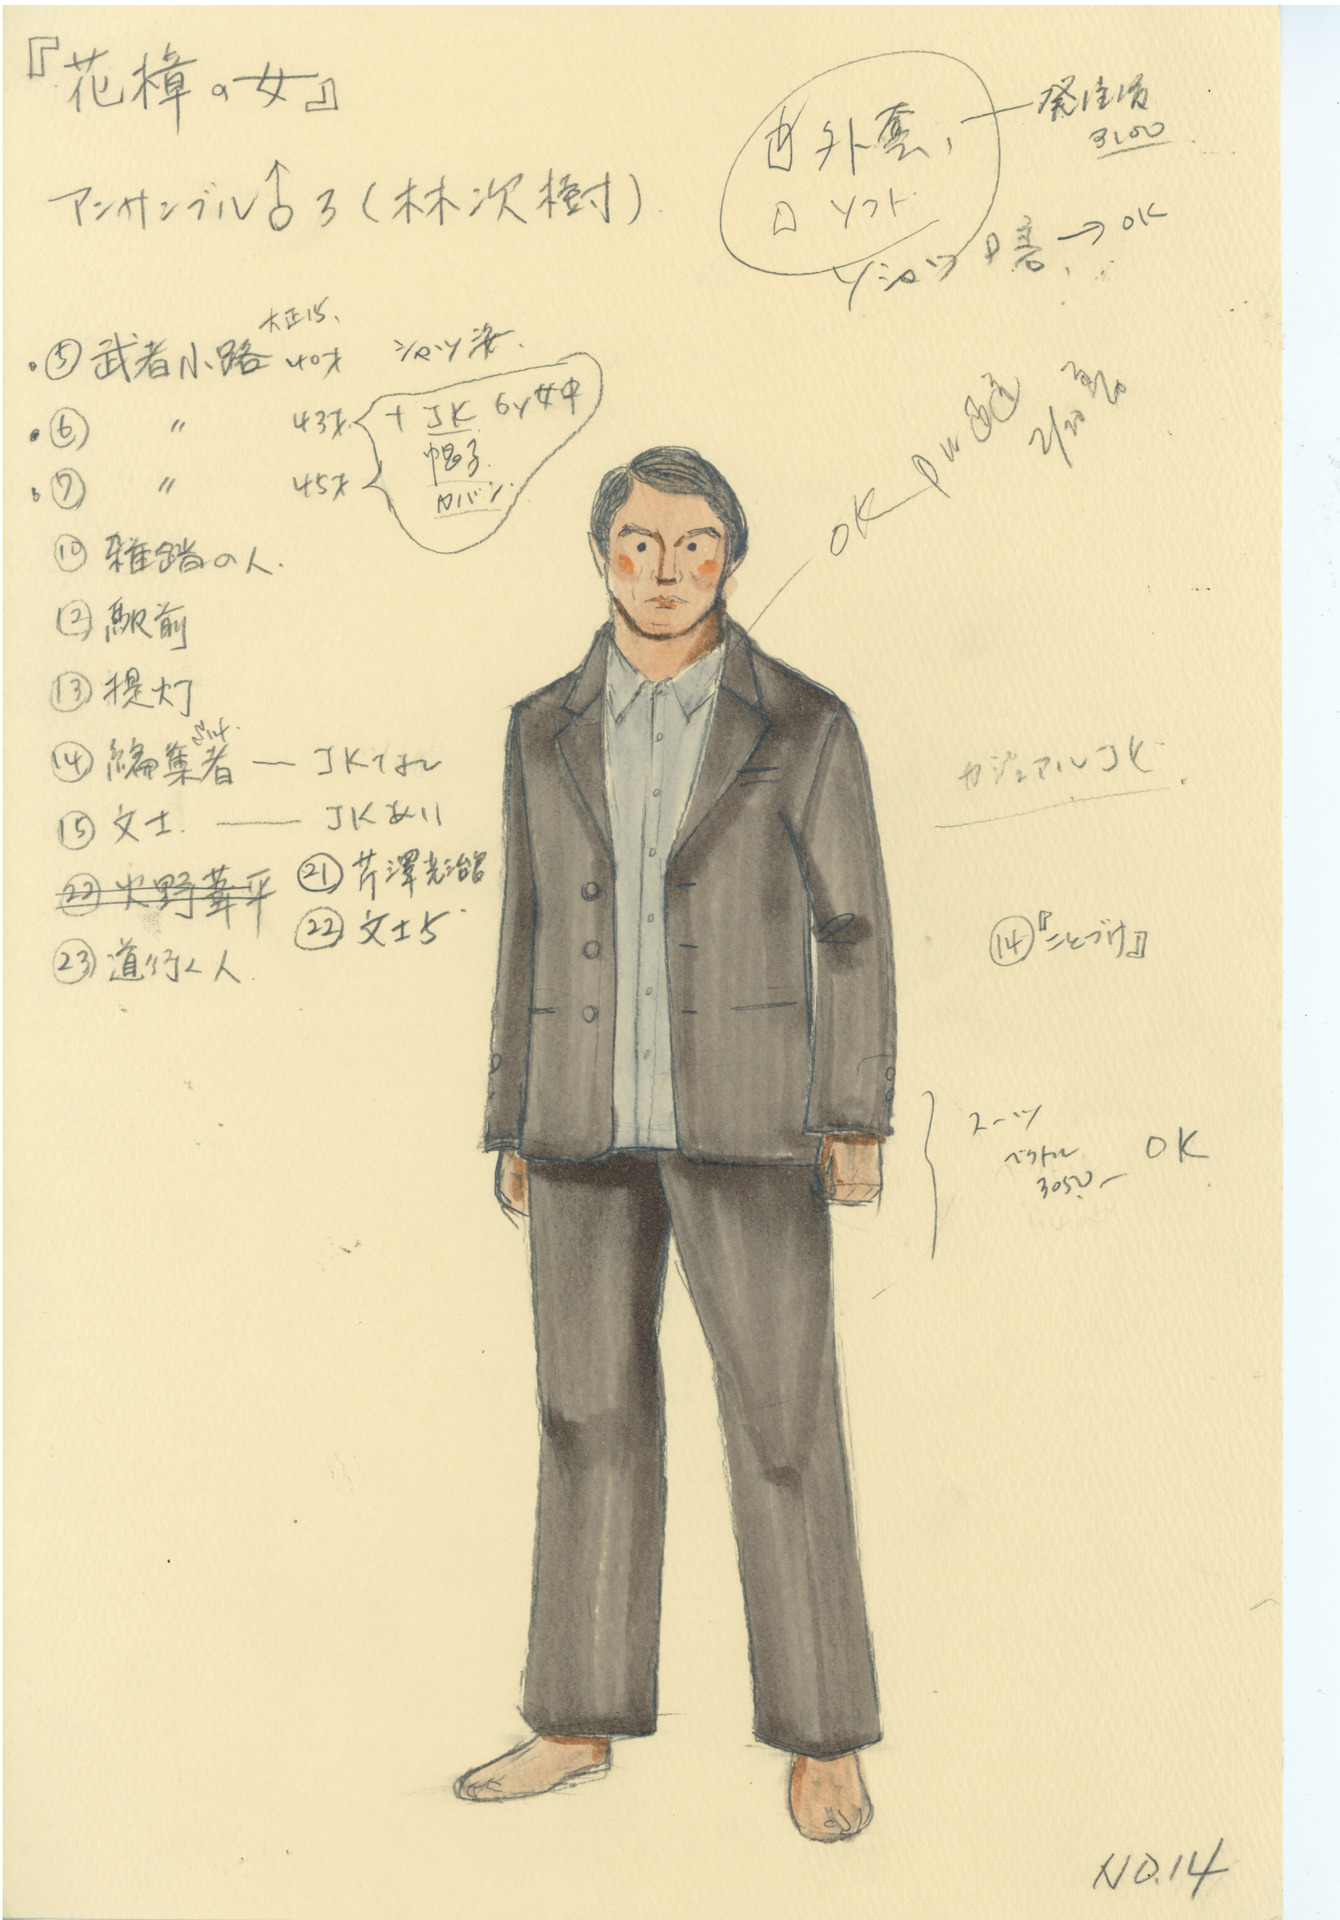 『花樟の女』
アンサンブル♂3(林次樹)
外套、
ソフト
3100
Yシャツ
→OK
大正15、
⑤武者小路 40才 シャツ姿.
⑥ 〃 43才
+JK 6y女中
帽子.
カバン.
⑦ 〃 45才
OK
⑩雑踏の人.
⑫駅前
⑬提灯
⑭編集者 — JKなし
⑮文士. — JKあり
㉒火野葦平
㉑芹澤光治良
㉒文士5
㉓道行く人.
カジュアルJK
⑭『ことづけ』
スーツ
ベクトル
3050
OK
NO.14